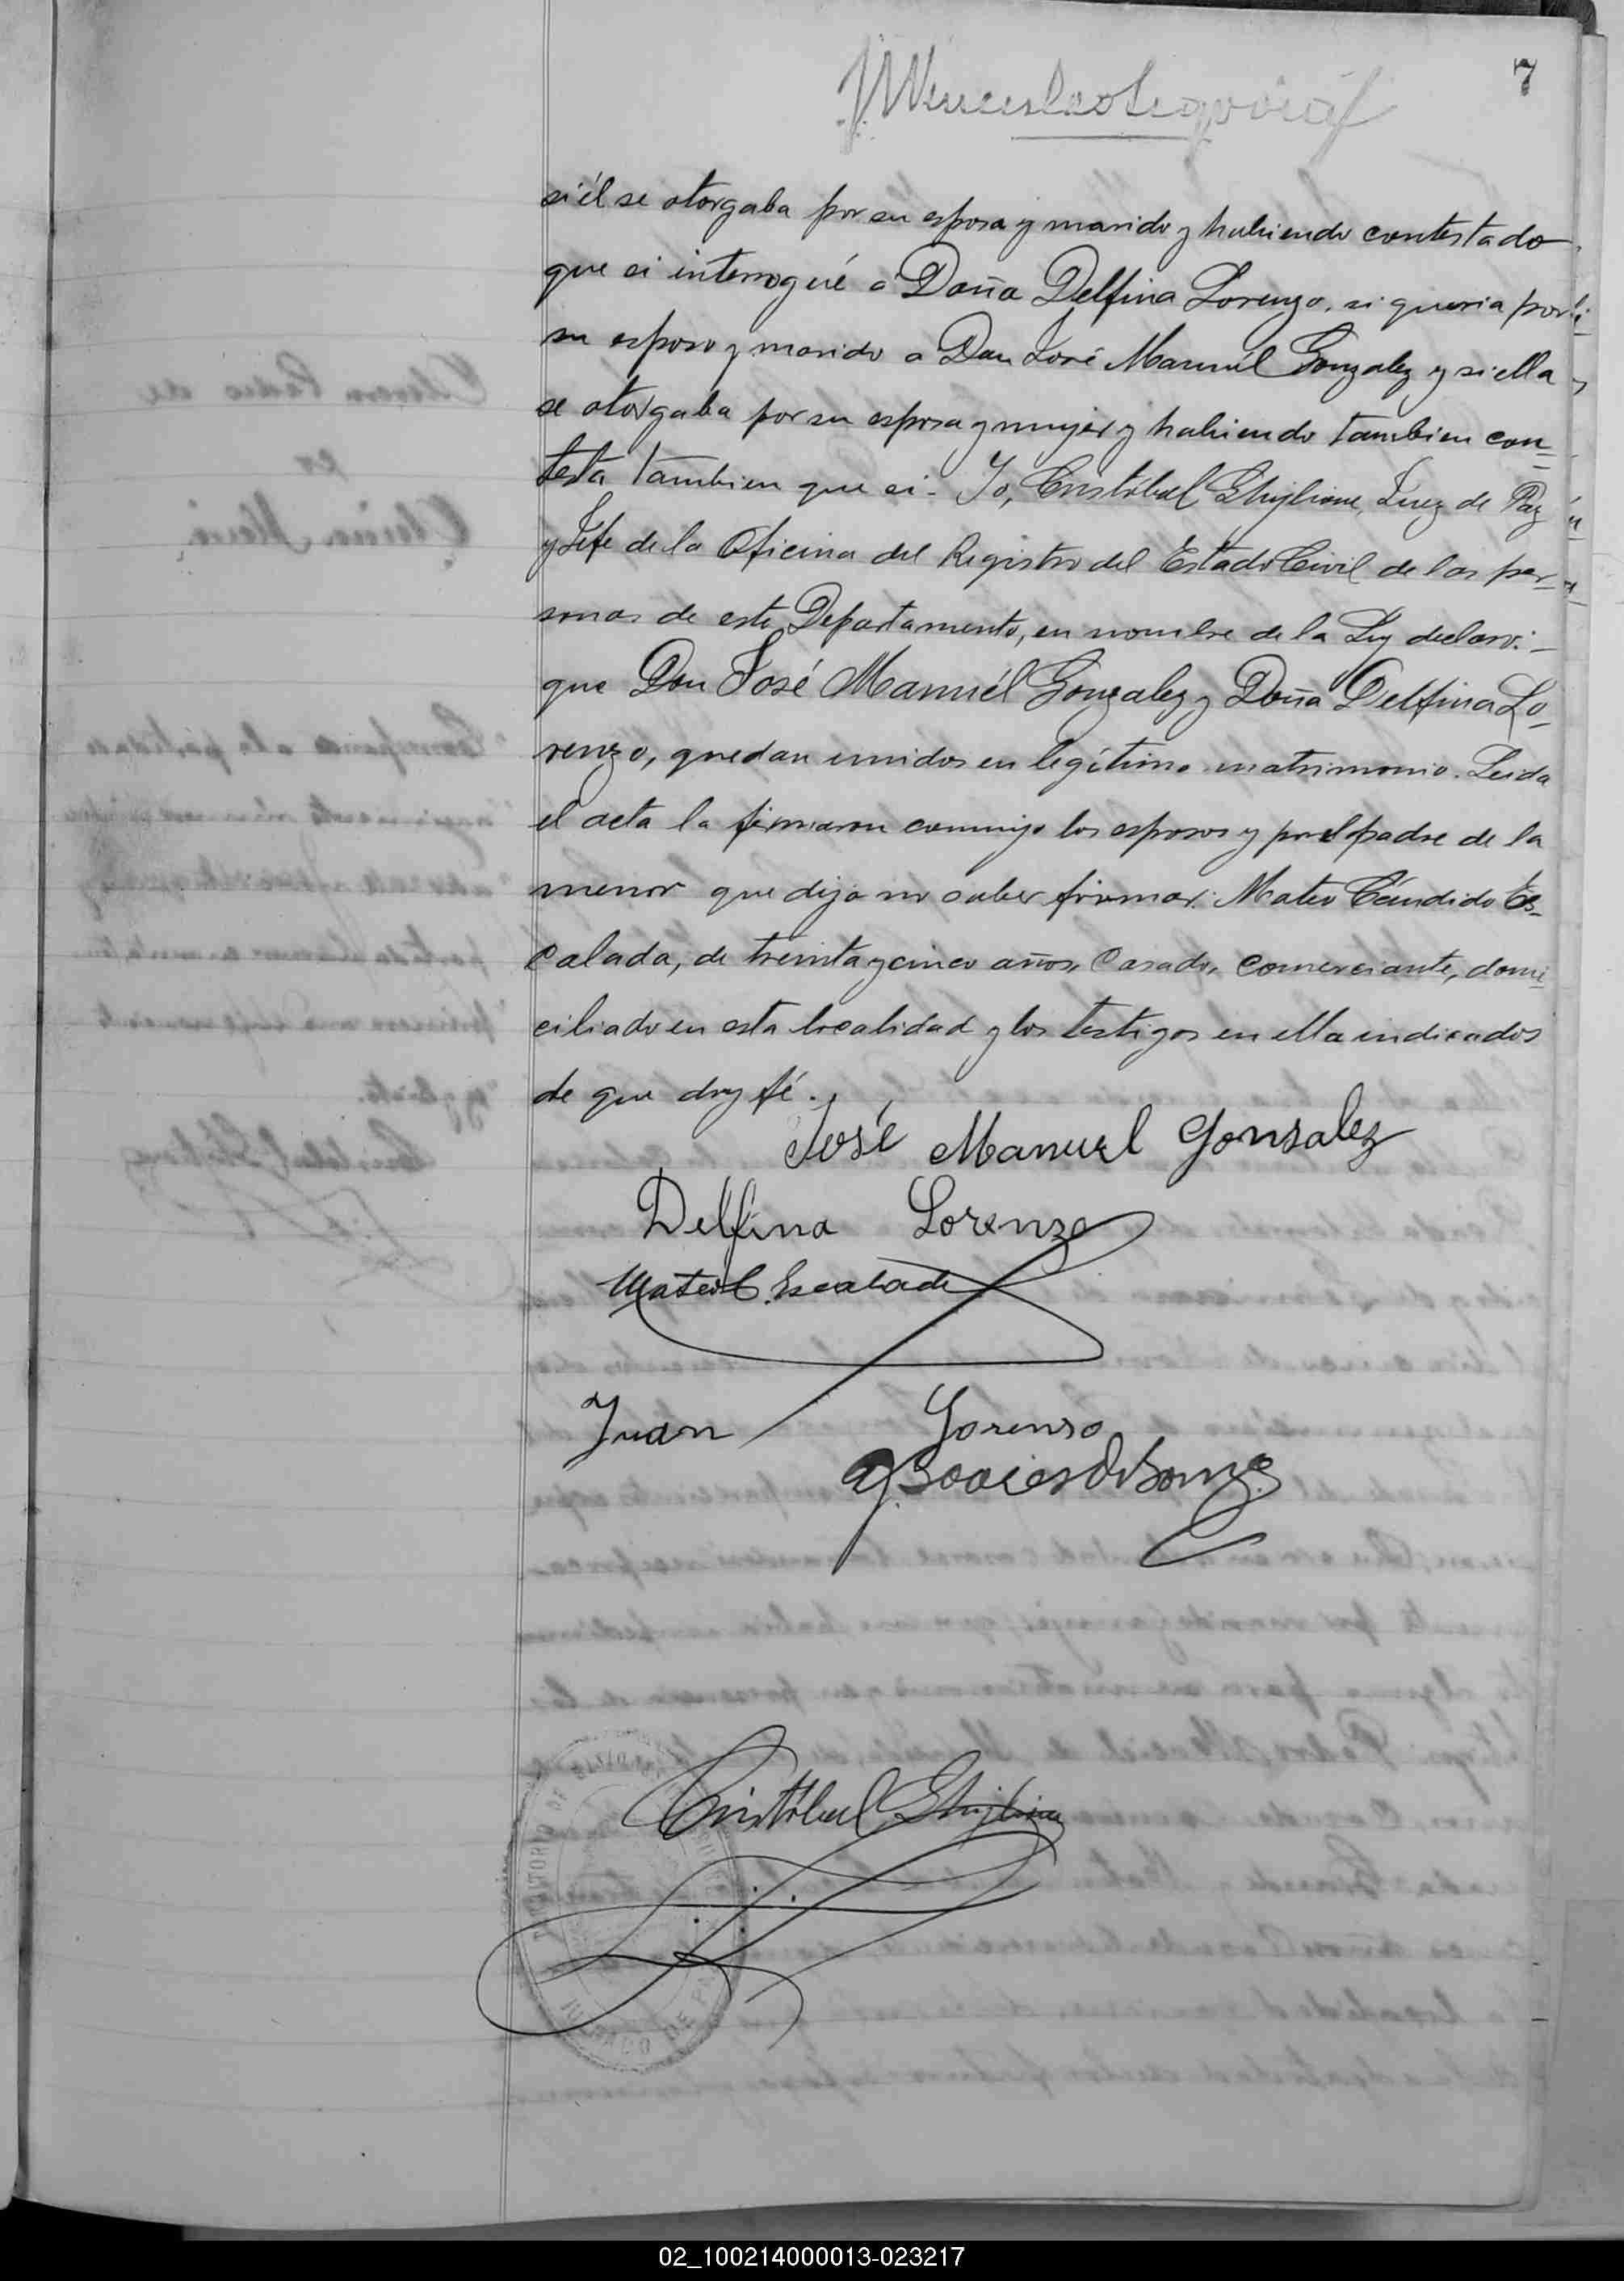 7
si él se otorgaba por su esposa y marido y habiendo contestado
que si interrogué a Doña Delfina Lorenzo, si queria por
su esposo y marido a Don José Manuél Gonzalez y si ella
se otorgaba por su esposa y mujer y habiendo tambien con=
testa tambien que si- Yo, Cristóbal Ghiglione, Juez de Paz
y Jefe de la Oficina del Registro del Estado Civil de las per-
sonas de este Departamento, en nombre de la Ley declaro:-
que Don José Manuél Gonzalez y Doña Delfina Lo-
renzo, quedan unidos en legítimo matrimonio. Leida
el acta la firmaron conmigo los esposos y por el padre de la
menor que dijo no saber firmar: Mateo Cándido Es-
calada, de treinta y cinco años, Casado, comerciante, domi-
ciliado en esta localidad y los testigos en ella indicados
de que doy fé.
José Manuel Gonsalez
Delfina Lorenzo
Mateo C. Escalada
Juan Lorenso
Cristóbal Ghiglione
JUZGADO DE PAZ
02_100214000013-023217